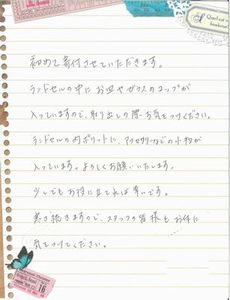 初めて寄付させていただきます。
ランドセルの中に お皿やガラスのコップが
入っていますので、取り出しの際、お気をつけください。
ランドセルの内ポケットに、アクセサリーなどの小物が
入っています。よろしくお願いいたします。
少しでもお役に立てれば幸いです。
寒さ続きますので、スタッフの皆様もお体に
気をつけてください。